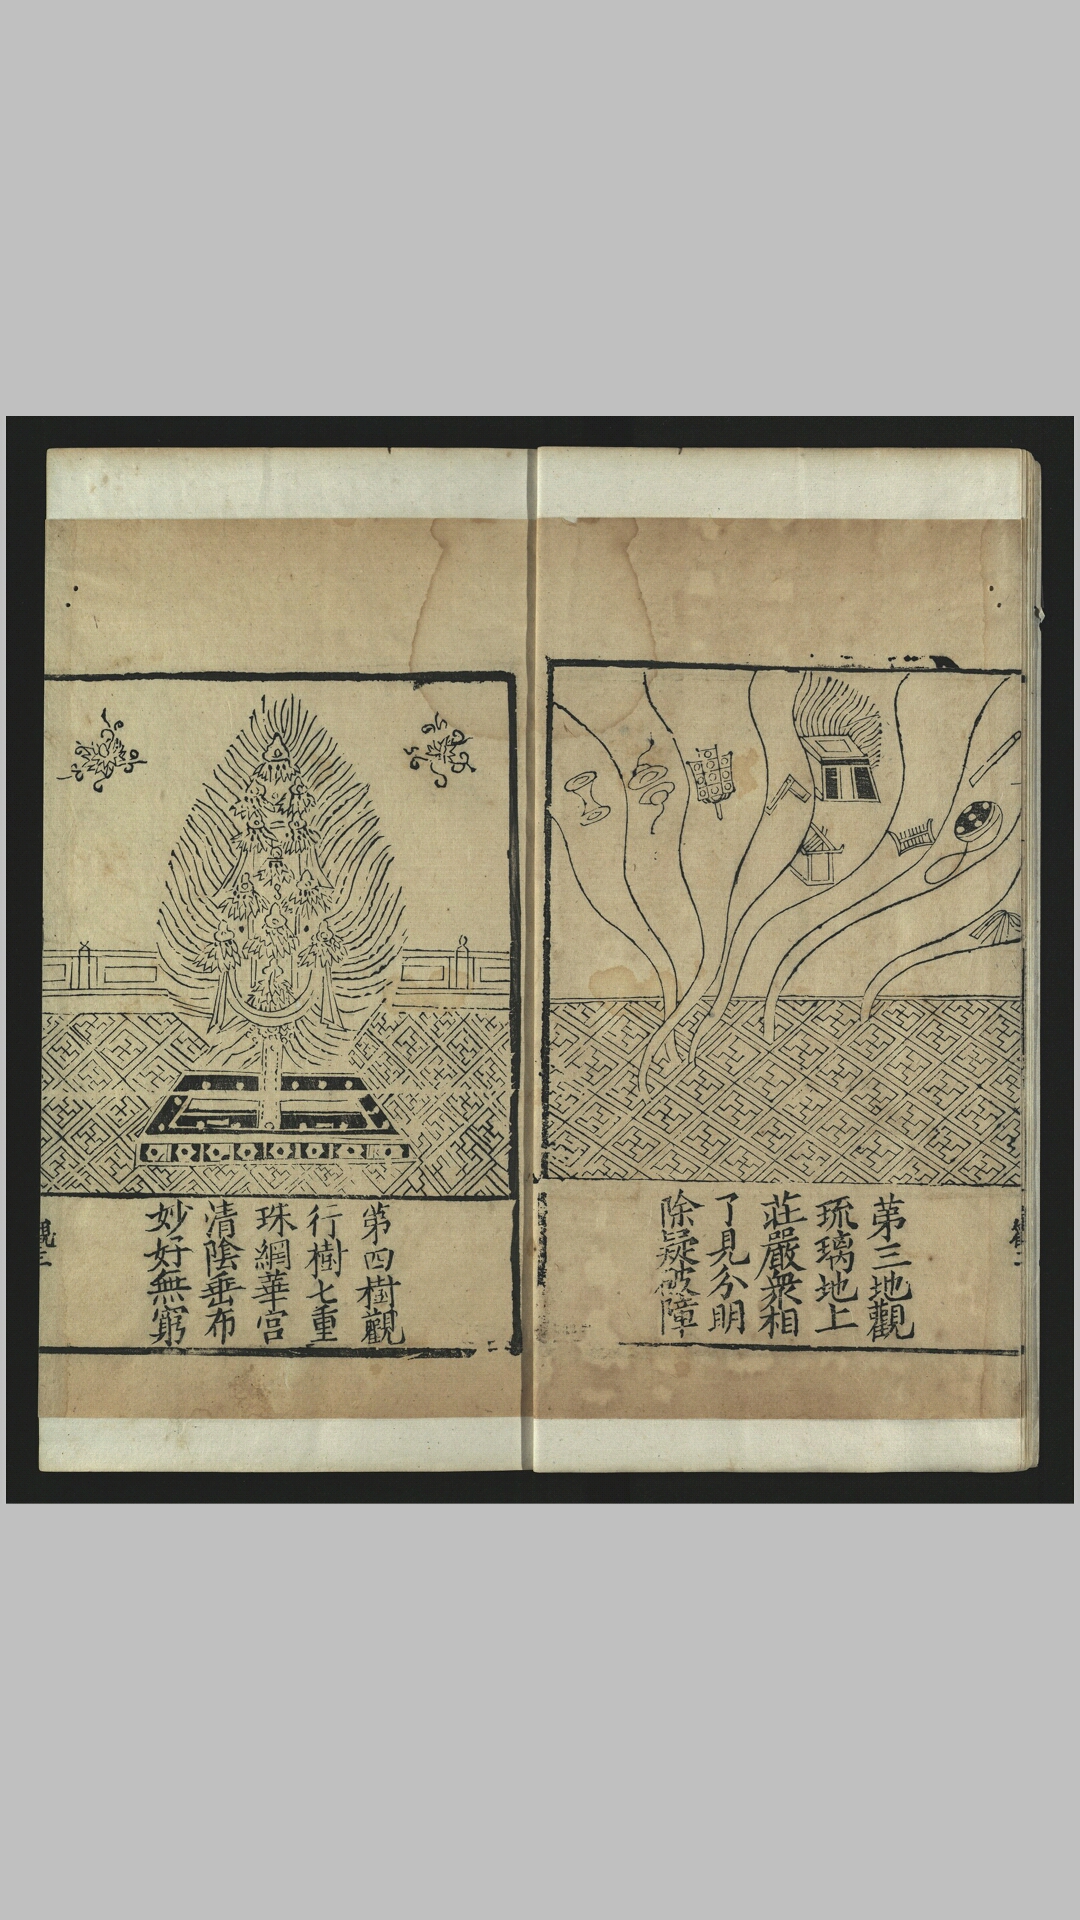 第三地觀
琉璃地上
莊嚴衆相
了見分明
除疑破障
第四樹觀
行樹七重
珠網華宮
清陰垂布
妙好無窮